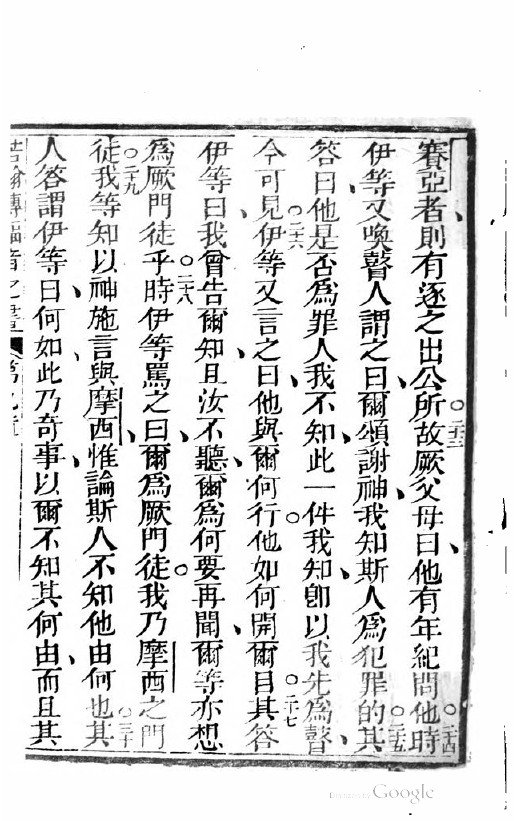 賽亞者則有逐之出公所○二三故厥父母曰他有年紀問他○二四時
伊等又喚瞽人謂之曰爾頌謝神我知斯人為犯罪的○二五其
答曰他是否為罪人我不知此一件我知卽以我先為瞽
今可見○二六伊等又言之曰他與爾何行他如何開爾目○二七其答
伊等曰我曾告爾知且汝不聽爾為何要再聞爾等亦想
為厥門徒乎○二八時伊等罵之曰爾為厥門徒我乃摩西之門
徒○二九我等知以神施言與摩西惟論斯人不知他由何也○三十其
人答謂伊等曰何如此乃奇事以爾不知其何由而且其
傳福音之書
Google